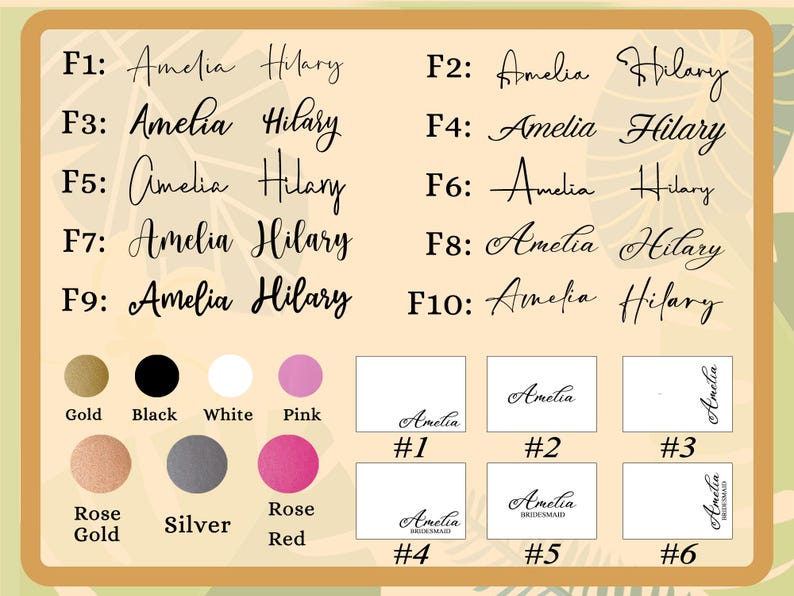 F1: Amelia Hilary F2: Amelia Hilary
F3: Amelia Hilary F4: Amelia Hilary
F5: Amelia Hilary F6: Amelia Hilary
F7: Amelia Hilary F8: Amelia Hilary
F9: Amelia Hilary F10: Amelia Hilary
Gold Black White Pink
Rose Gold
Silver
Rose Red
Amelia
#1
Amelia
#2
Amelia
#3
Amelia
BRIDESMAID
#4
Amelia
BRIDESMAID
#5
Amelia
BRIDESMAID
#6